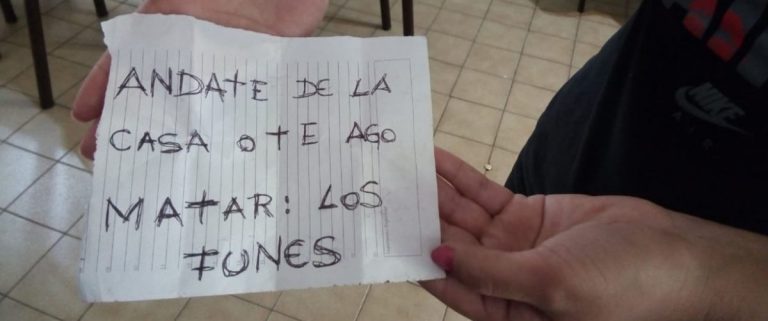 ANDATE DE LA
CASA O TE AGO
MATAR: LOS
FUNES
NIKE
AIR